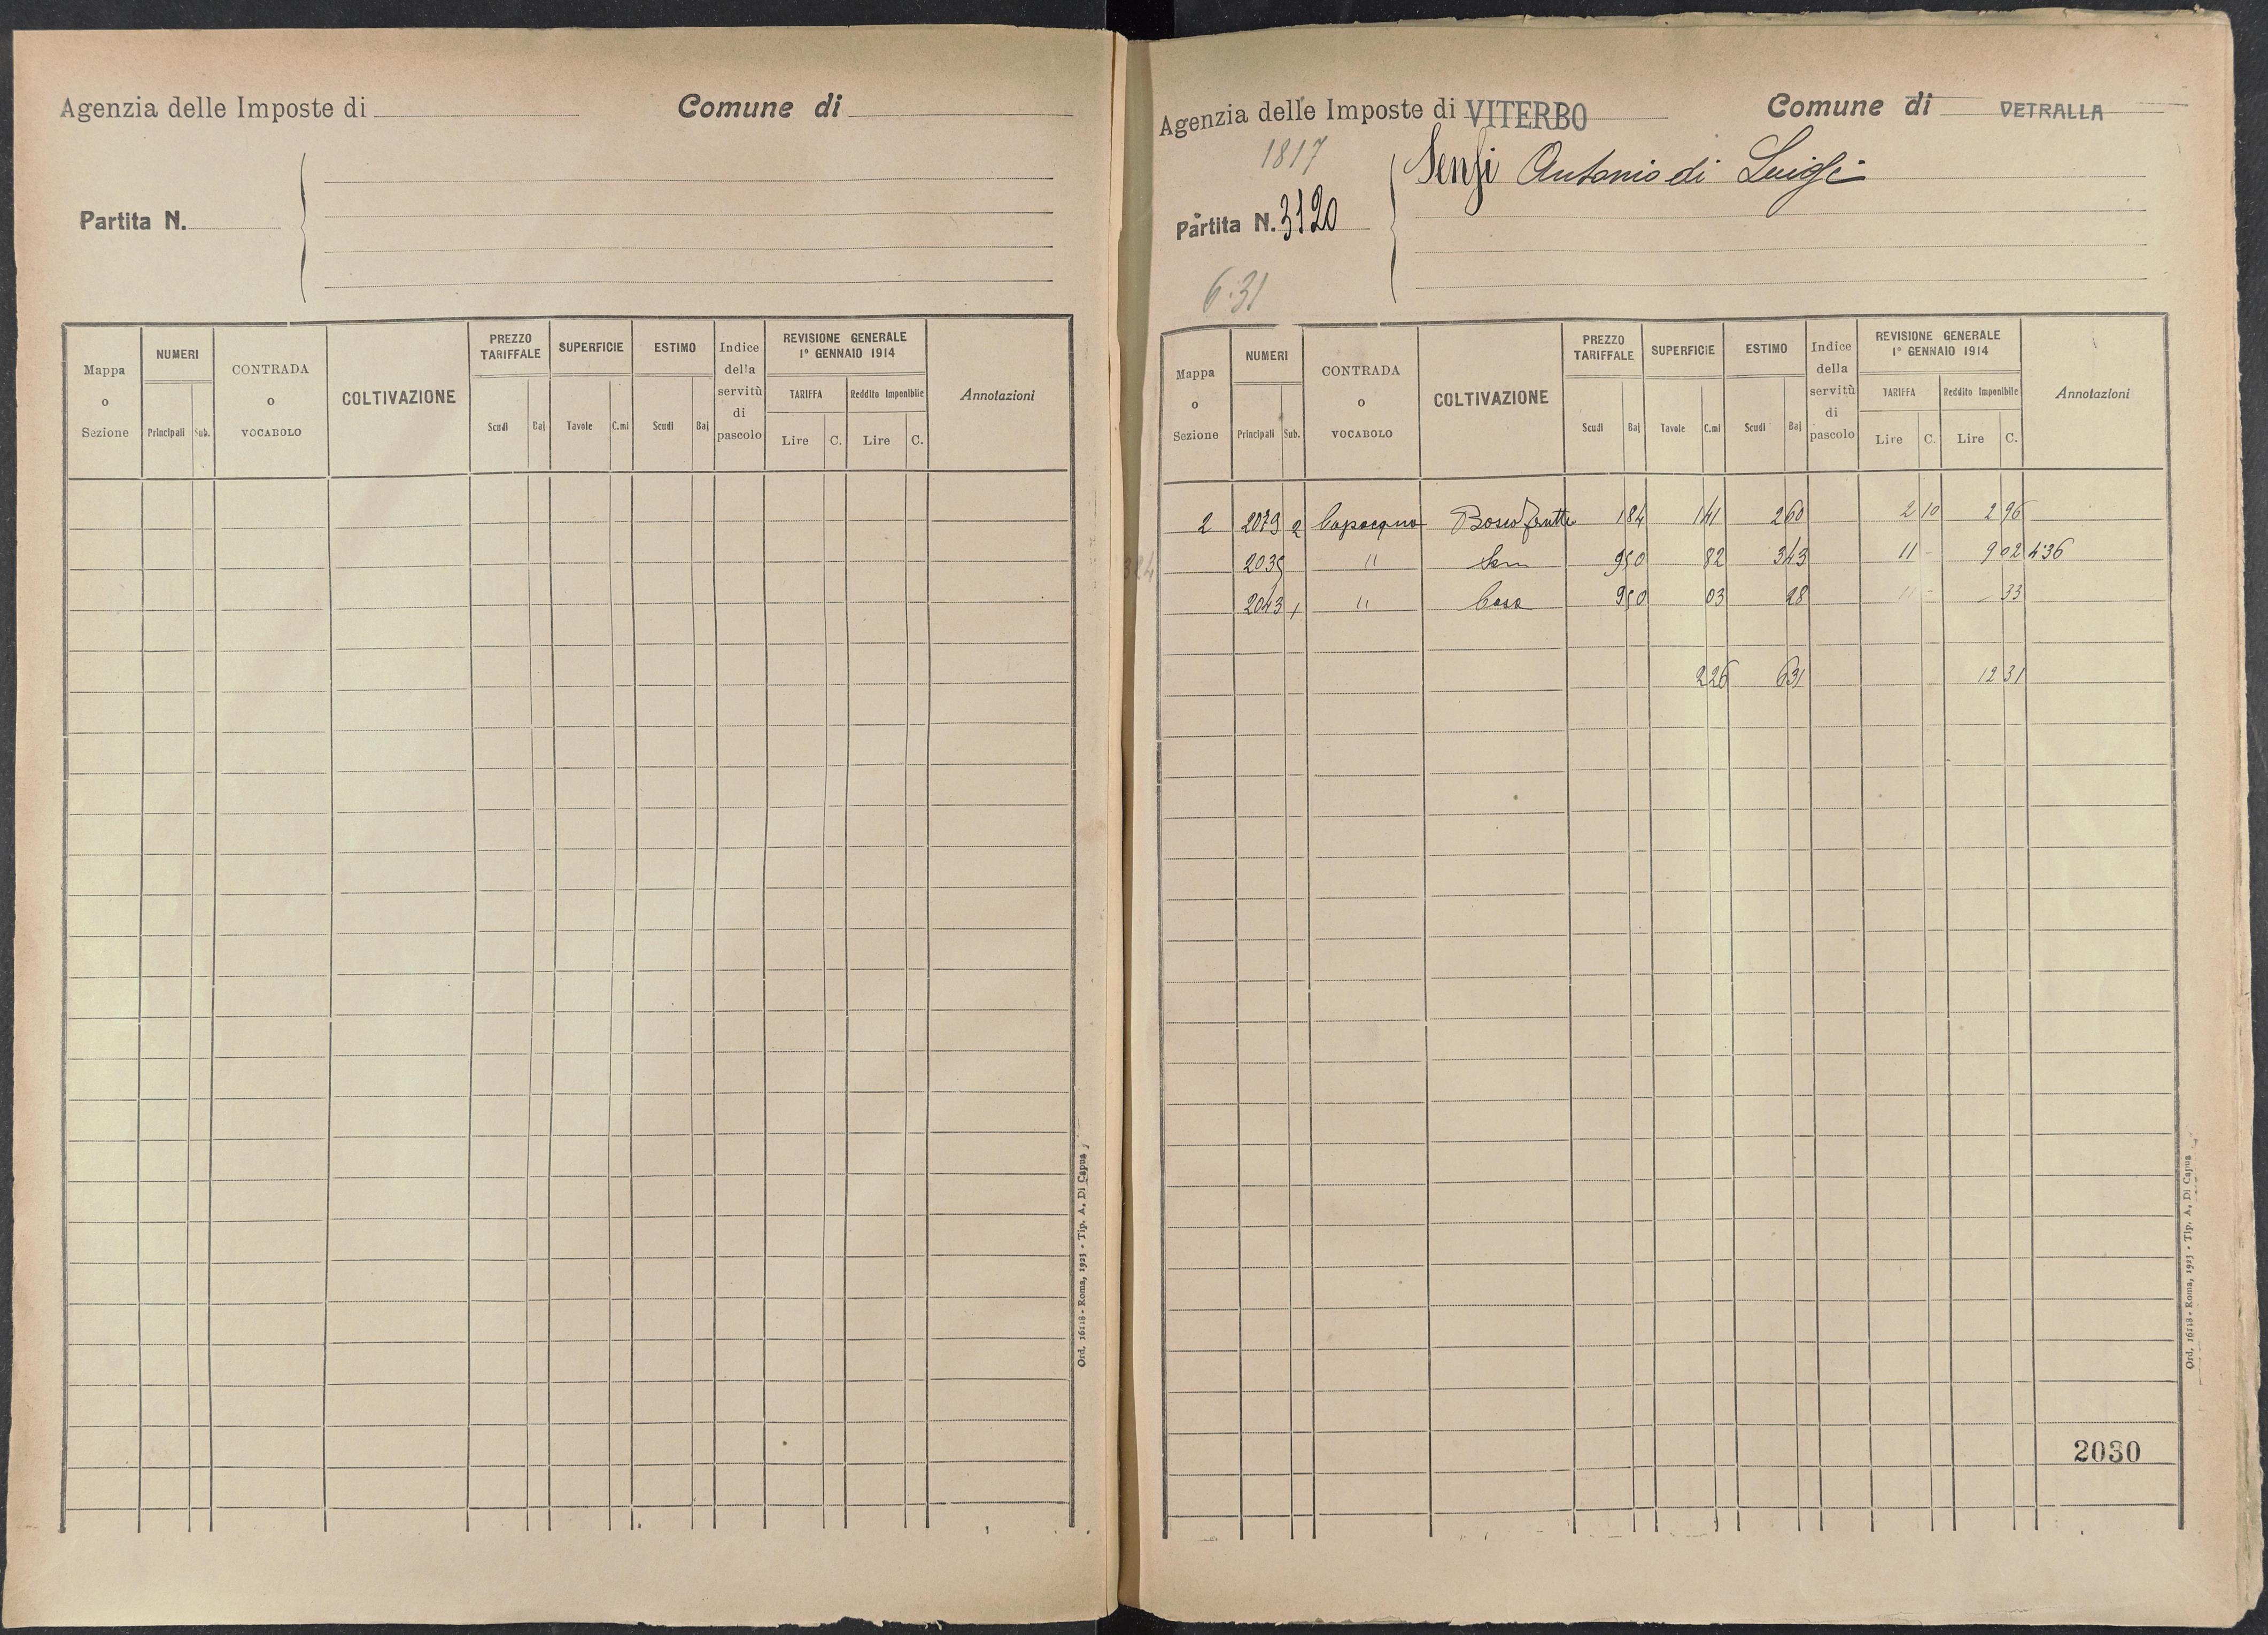 Agenzia delle Imposte di
Comune di
Partita N.
Mappa o Sezione
NUMERI
Principali
Sub.
CONTRADA o VOCABOLO
COLTIVAZIONE
PREZZO TARIFFALE
Scudi
Baj
SUPERFICIE
Tavole
C.mi
ESTIMO
Scudi
Baj
Indice della servitù di pascolo
REVISIONE GENERALE
1° GENNAIO 1914
TARIFFA
Lire
C.
Reddito Imponibile
Lire
C.
Annotazioni
Ord. 16118 - Roma, 1923 - Tip. A. Di Capua
Agenzia delle Imposte di VITERBO
Comune di VETRALLA
1817
Sensi Antonio di Luigi
Partita N. 3120
6.31
Mappa o Sezione
NUMERI
Principali
Sub.
CONTRADA o VOCABOLO
COLTIVAZIONE
PREZZO TARIFFALE
Scudi
Baj
SUPERFICIE
Tavole
C.mi
ESTIMO
Scudi
Baj
Indice della servitù di pascolo
REVISIONE GENERALE
1° GENNAIO 1914
TARIFFA
Lire
C.
Reddito Imponibile
Lire
C.
Annotazioni
2 2079 2 Capacqua Bosco frutti 1 84 1 41 2 60 2 10 2 96
203 " 9 50 82 3 43 11 - 9 02 4'36
2043 1 " Casa 9 50 03 28 11 - 33
2 26 6 31 12 31
2030
Ord. 16118 - Roma, 1923 - Tip. A. Di Capua